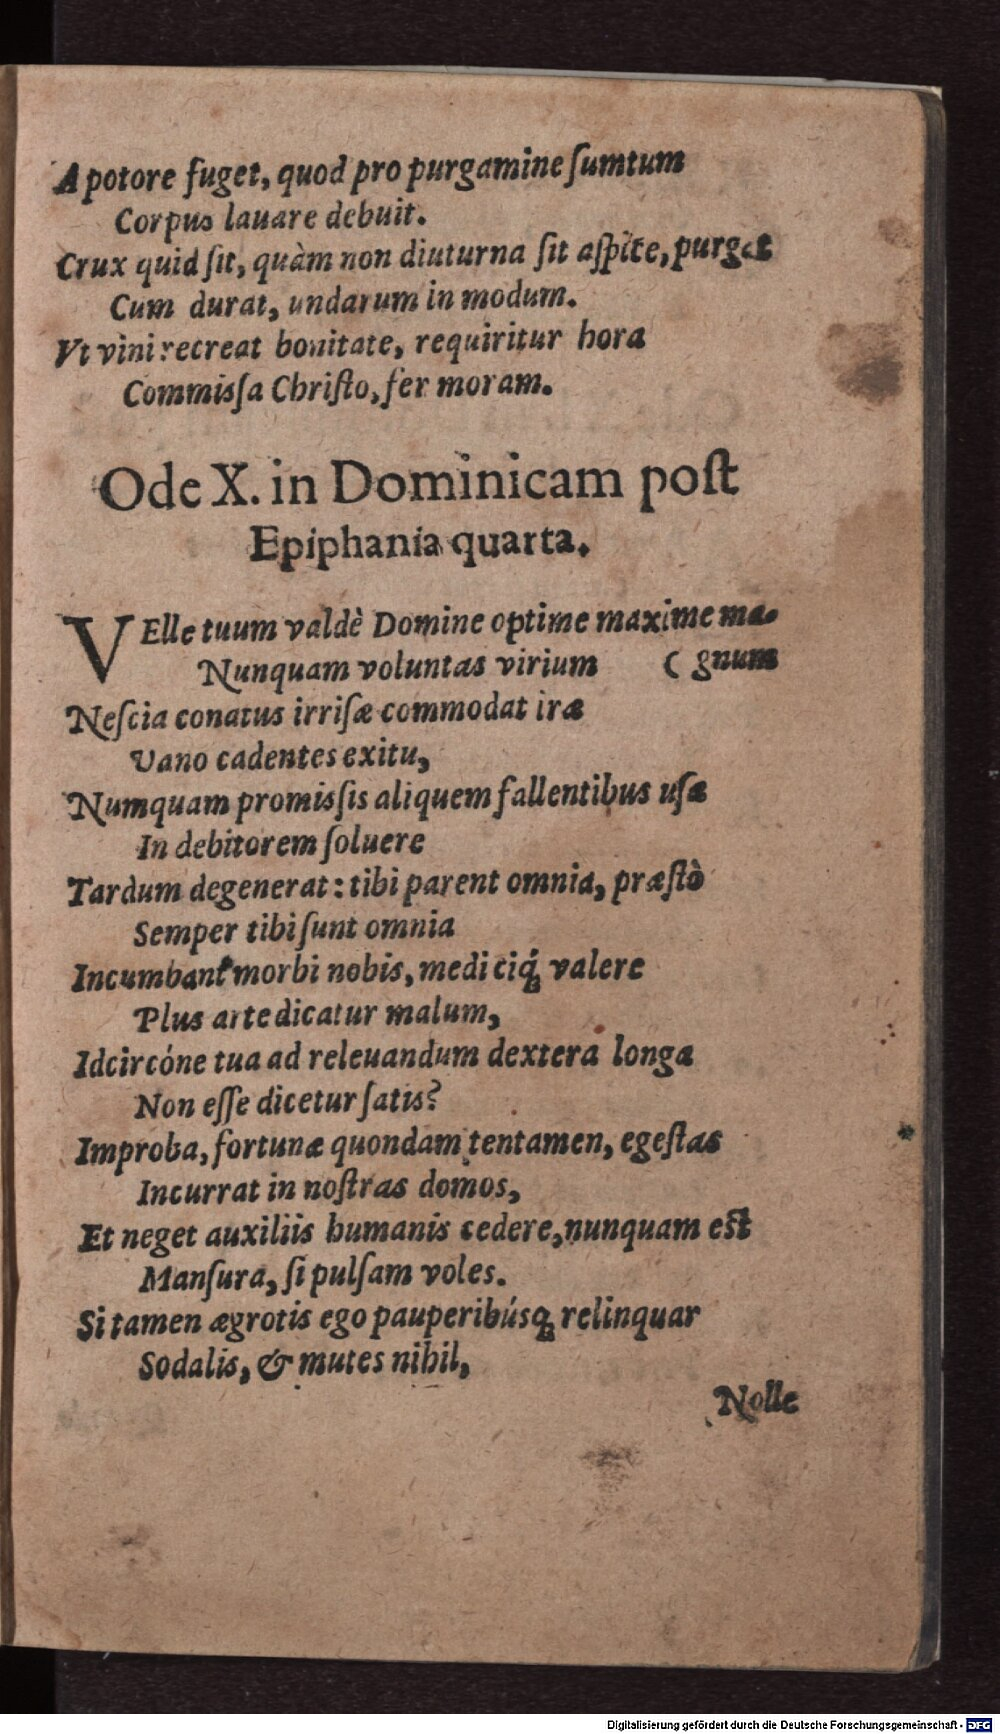 A potore fuget, quod pro purgamine ſumtum
Corpus lauare debuit.
Crux quid ſit, quàm non diuturna ſit aſpice, purget
Cum durat, undarum in modum.
Vt vini recreat bonitate, requiritur hora
Commiſſa Chriſto, fer moram.
Ode X. in Dominicam poſt
Epiphania quarta.
VElle tuum valdè Domine optime maxime ma-
Nunquam voluntas virium ( gnum
Neſcia conatus irriſæ commodat iræ
Vano cadentes exitu,
Numquam promiſſis aliquem fallentibus uſæ
In debitorem ſoluere
Tardum degenerat: tibi parent omnia, præſtò
Semper tibi ſunt omnia
Incumbant morbi nobis, mediciq́; valere
Plus arte dicatur malum,
Idcircóne tua ad releuandum dextera longa
Non eſſe dicetur ſatis?
Improba, fortunæ quondam tentamen, egeſtas
Incurrat in noſtras domos,
Et neget auxiliis humanis cedere, nunquam eſt
Manſura, ſi pulſam voles.
Si tamen ægrotis ego pauperibúsq; relinquar
Sodalis, & mutes nihil,
Nolle
Digitalisierung gefördert durch die Deutsche Forschungsgemeinschaft - DFG